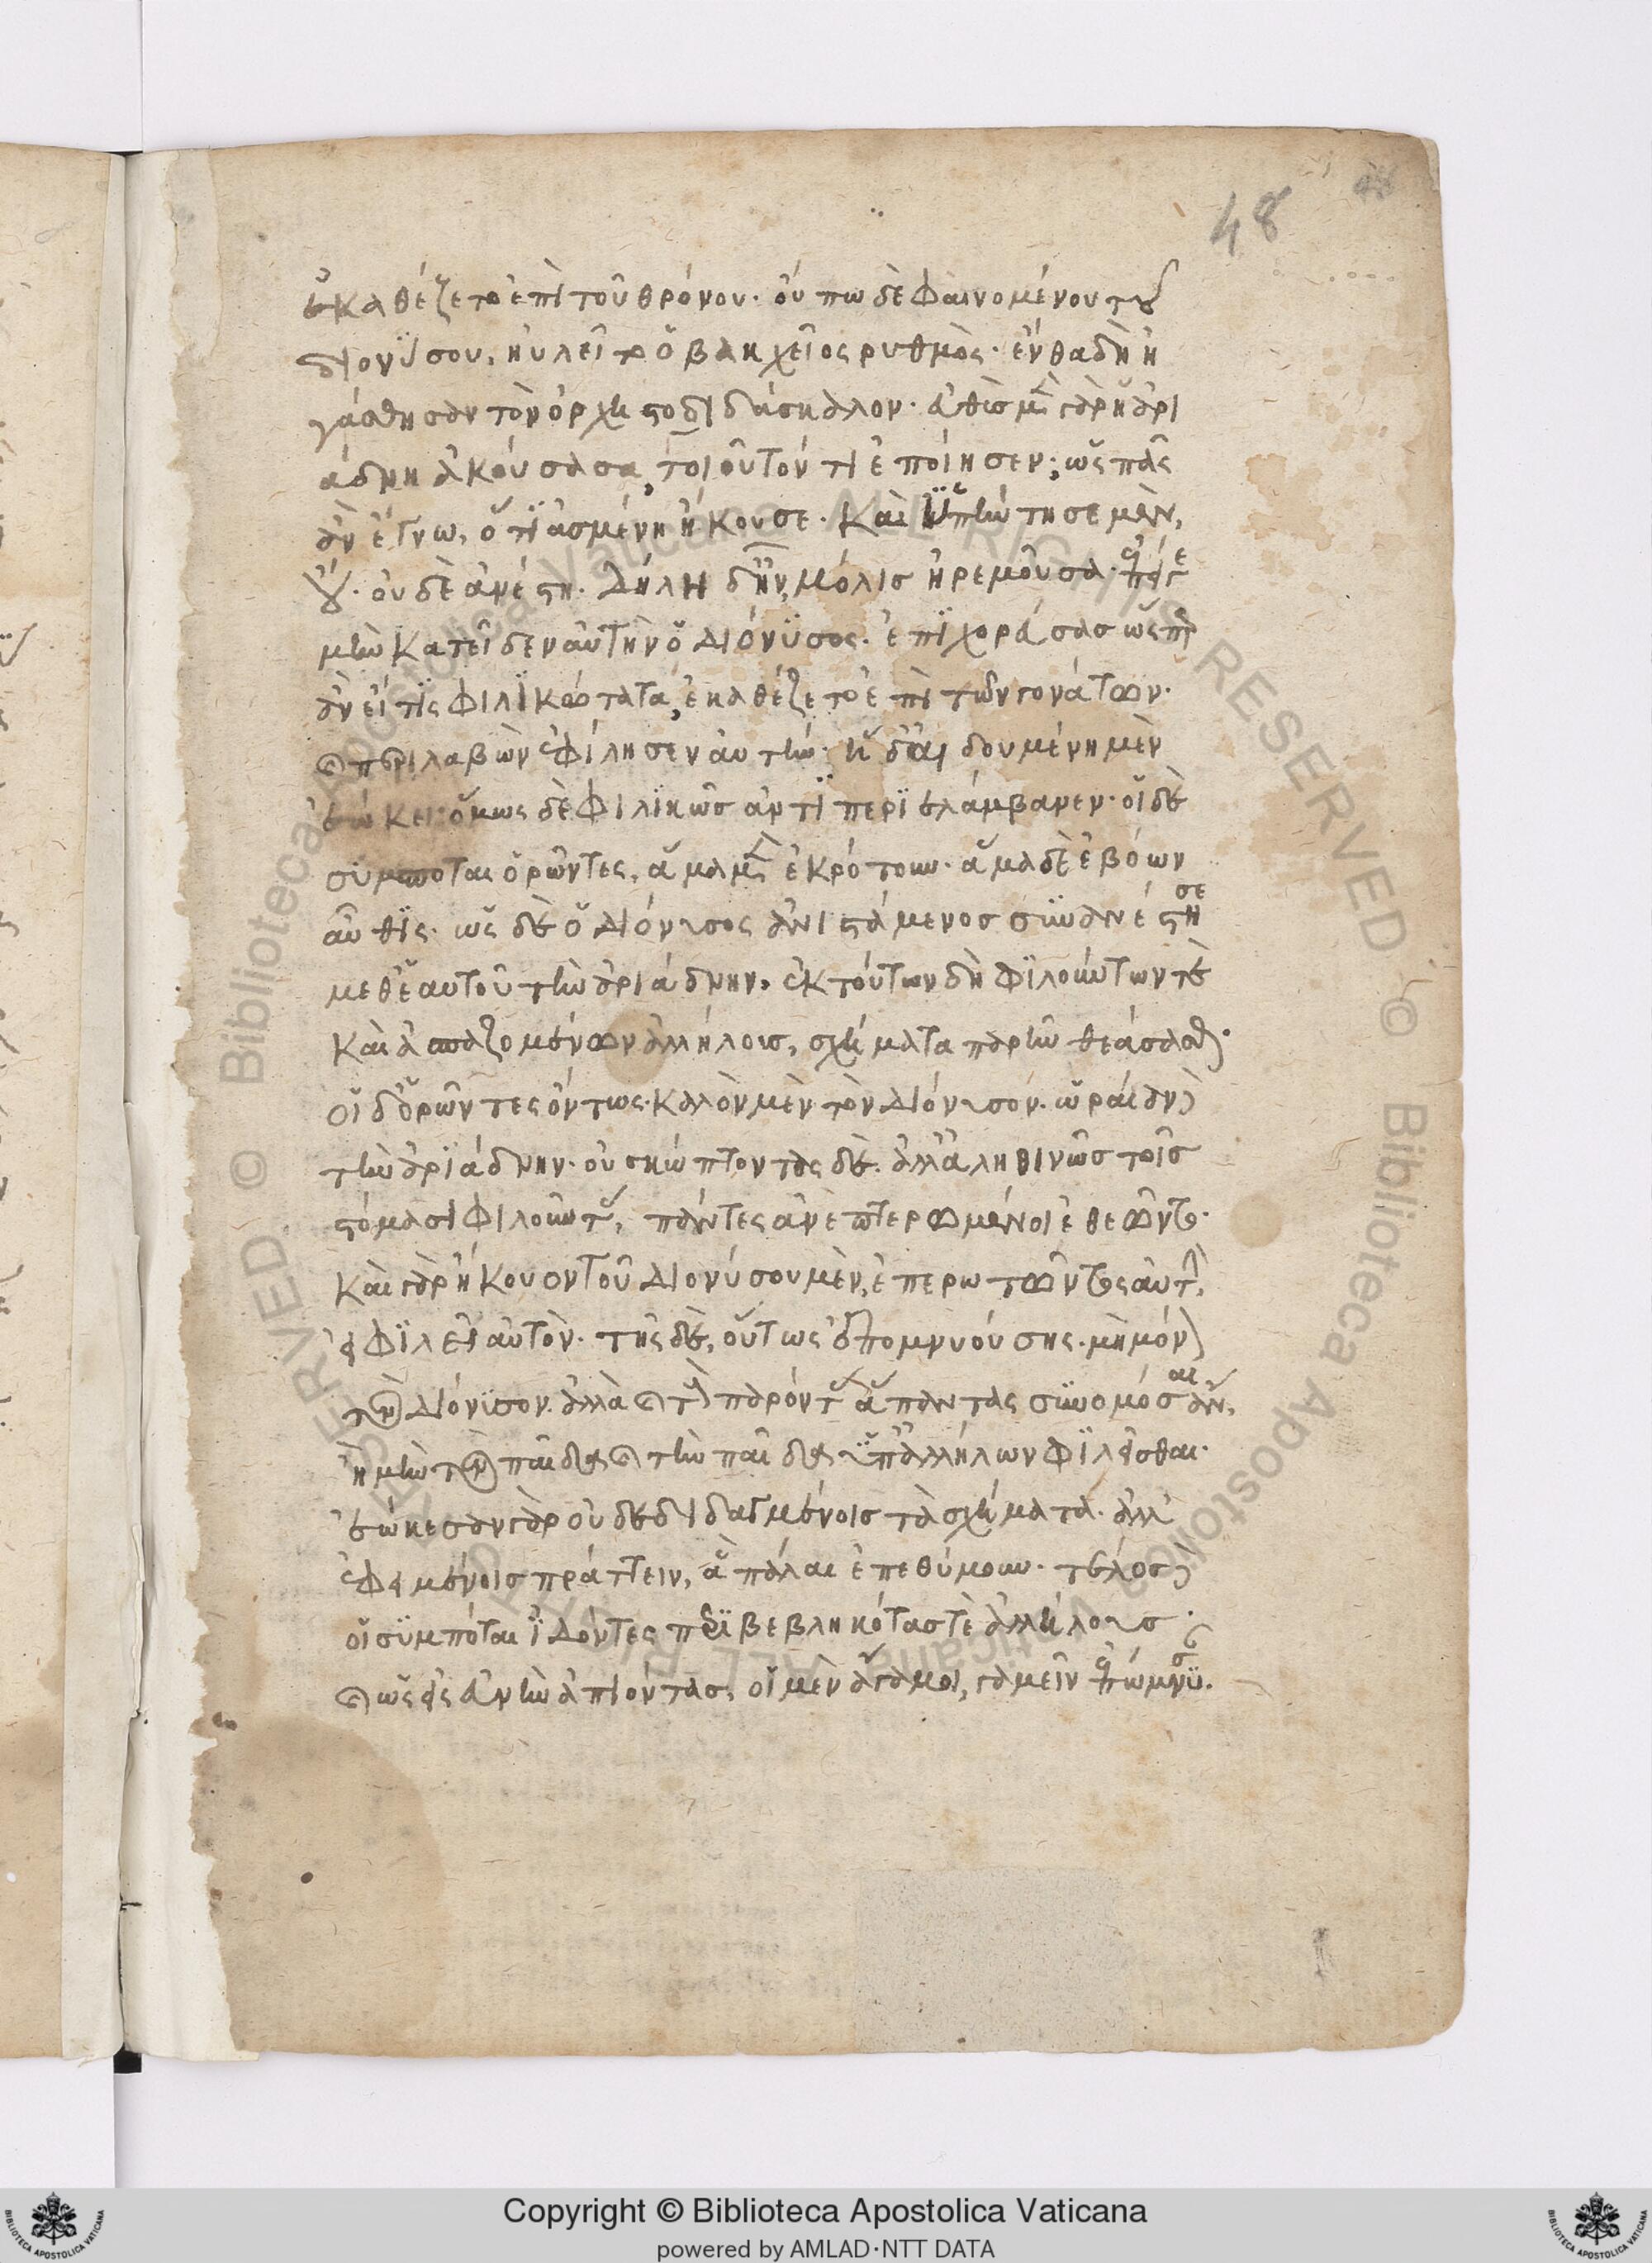 48
ἐκαθέζετο ἐπὶ τοῦ θρόνου· οὔπω δὲ φαινομένου τοῦ
διονύσου, ηὐλεῖτο ὁ βακχεῖος ῥυθμὸς· ἔνθα δὴ ἠ
γάσθησαν τὸν ὀρχηστοδιδάσκαλον· εὐθὺς μὲν γὰρ ἡ ἀρι
άδνη ἀκούσασα, τοιοῦτόν τι ἐποίησεν· ὡς πᾶς
ἂν ἔγνω, ὅτι ἀσμένη ἤκουσε· καὶ ὑπήντησε μὲν,
οὔ· οὐδὲ ἀνέστη· δήλη δ' ἦν, μόλις ἠρεμοῦσα· ἐπεί γε
μὴν κατεῖδεν αὐτὴν ὁ διόνυσος· ἐπιχορεύσας ὥσπερ
ἂν εἴ τις φιλικώτατα, ἐκαθέζετο ἐπὶ τῶν γονάτων·
καὶ περιλαβὼν ἐφίλησεν αὐτήν· ἡ δ' αἰδουμένη μὲν
ἐῴκει· ὅμως δὲ φιλικῶς ἀντιπεριελάμβανεν· οἱ δὲ
συμπόται ὁρῶντες, ἅμα μὲν ἐκρότουν· ἅμα δὲ ἐβόων
αὖθις· ὡς δὲ ὁ διόνυσος ἀνιστάμενος συνανέστησε
μεθ' ἑαυτοῦ τὴν ἀριάδνην, ἐκ τούτων δὴ φιλούντων τε
καὶ ἀσπαζομένων ἀλλήλοις, σχήματα παρῆν θεάσασθαι·
οἱ δ' ὁρῶντες ὄντως καλὸν μὲν τὸν διόνυσον· ὡραίαν δὲ
τὴν ἀριάδνην· οὐ σκώπτοντας δὲ· ἀλλ' ἀληθινῶς τοῖς
στόμασι φιλοῦντας, πάντες ἀνεπτερωμένοι ἐθεῶντο·
καὶ γὰρ ἤκουον τοῦ διονύσου μὲν, ἐπερωτῶντος αὐτὴν,
εἰ φιλεῖ αὐτὸν· τῆς δὲ, οὕτως ἐπομνυούσης· μὴ μόνον
τὸν διόνυσον· ἀλλὰ καὶ τοὺς παρόντας ἅπαντας συνομόσαι ἂν,
ἦ μὴν τὸν παῖδα καὶ τὴν παῖδα ὑπ' ἀλλήλων φιλεῖσθαι·
ἐῴκεσαν γὰρ οὐ δεδιδαγμένοις τὰ σχήματα· ἀλλ'
ἐφειμένοις πράττειν, ἃ πάλαι ἐπεθύμουν· τέλος δὲ
οἱ συμπόται ἰδόντες περιβεβληκότας τὲ ἀλλήλους
καὶ ὡς εἰς εὐνὴν ἀπιόντας, οἱ μὲν ἄγαμοι, γαμεῖν ἐπώμνυσ.